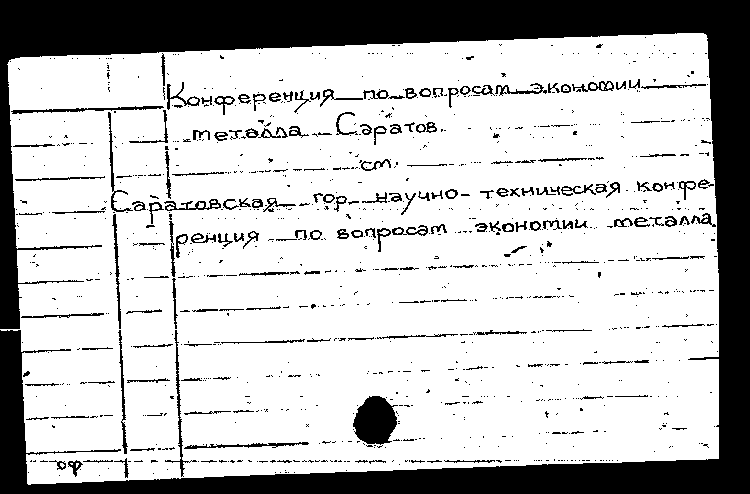 Конференция по вопросам экономии
металла Саратов.
см.
Саратовская гор. научно-техническая конфе-
ренция по вопросам экономии металла
оф